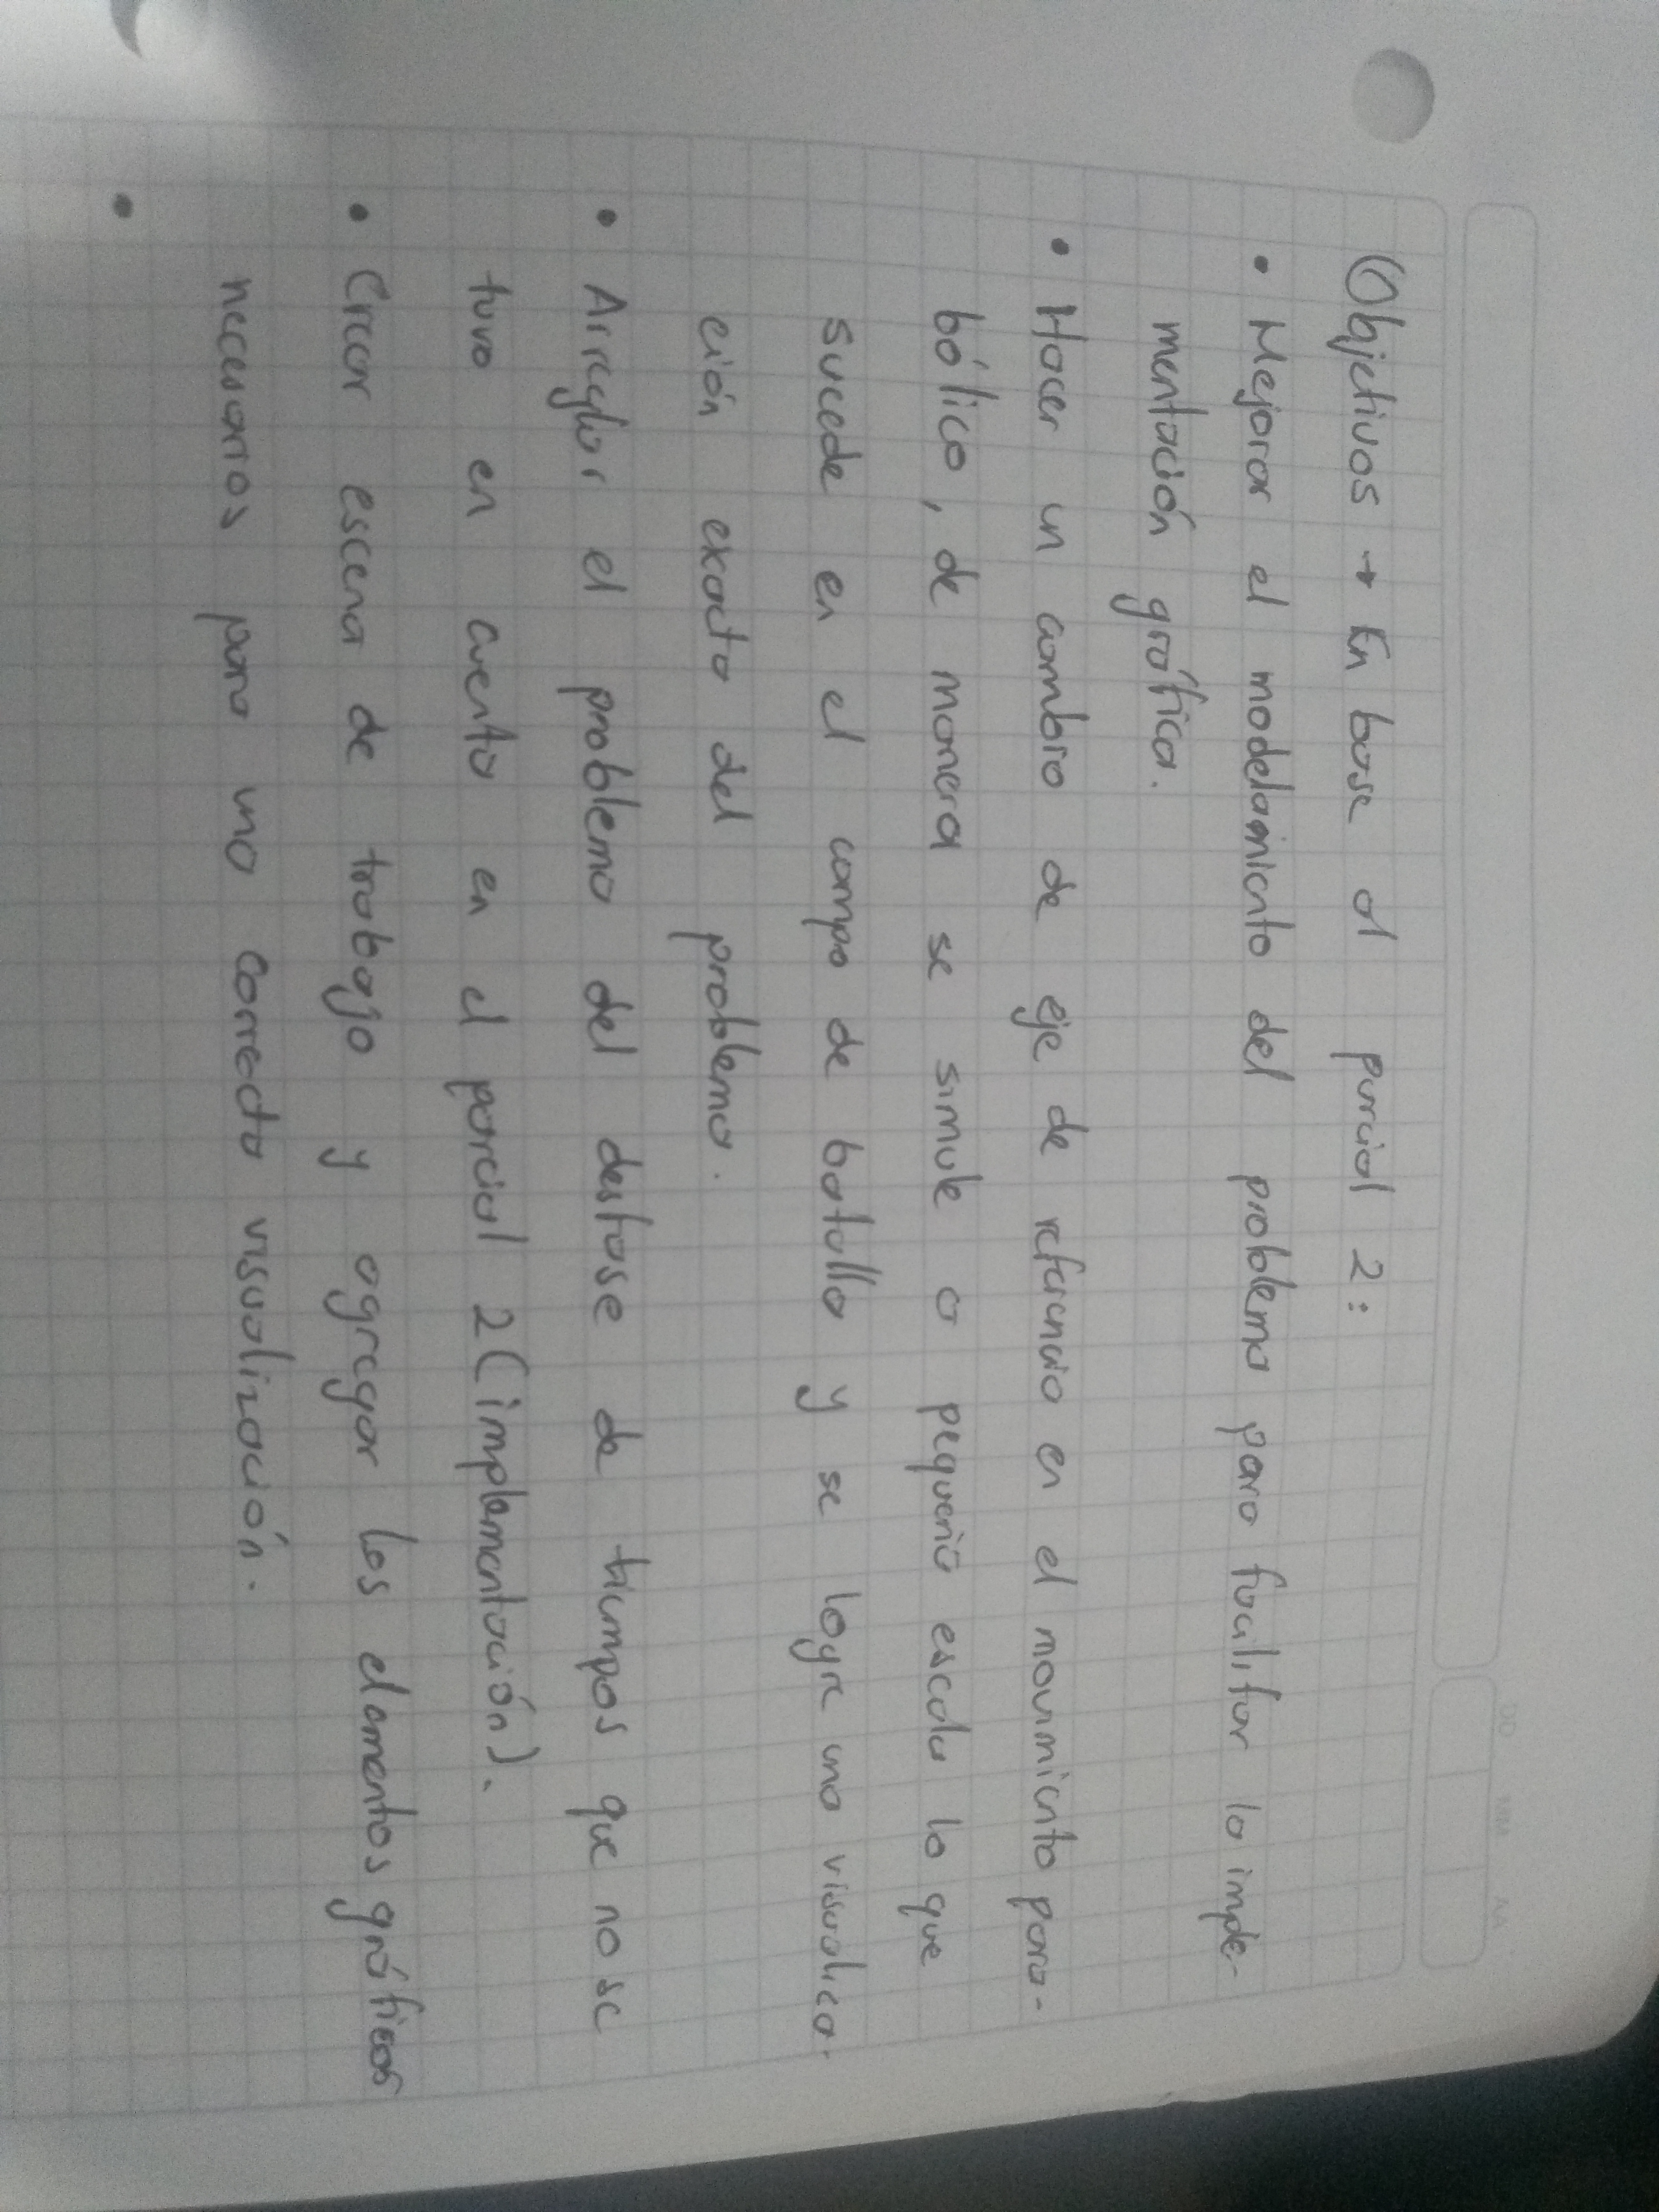 Objetivos → En base al parcial 2:
• Mejorar el modelamiento del problema para facilitar la imple-
mentación gráfica.
• Hacer un cambio de eje de referencia en el movimiento para-
bólico, de manera se simule a pequeña escala lo que
sucede en el campo de batalla y se logre una visualica-
ción exacta del problema.
• Arreglar el problema del desfase de tiempos que no se
tuvo en cuenta en el parcial 2 (implementación).
• Crear escena de trabajo y agregar los elementos gráficos
necesarios para una correcta visualización.
•
DD MM AA